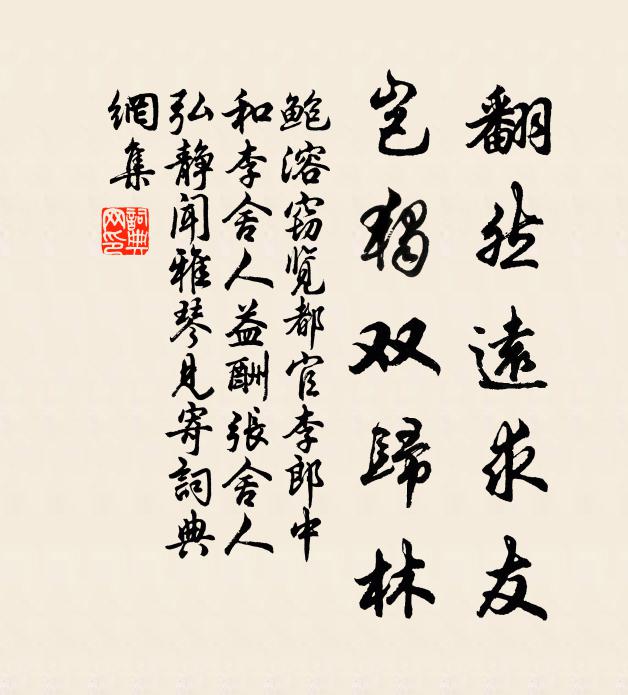 翻然遠求友
豈獨双歸林
鮑溶窃覽都官李郎中
和李舍人益酬張舍人
弘靜闻雅琴见寄詞典
網集
詞典
网印